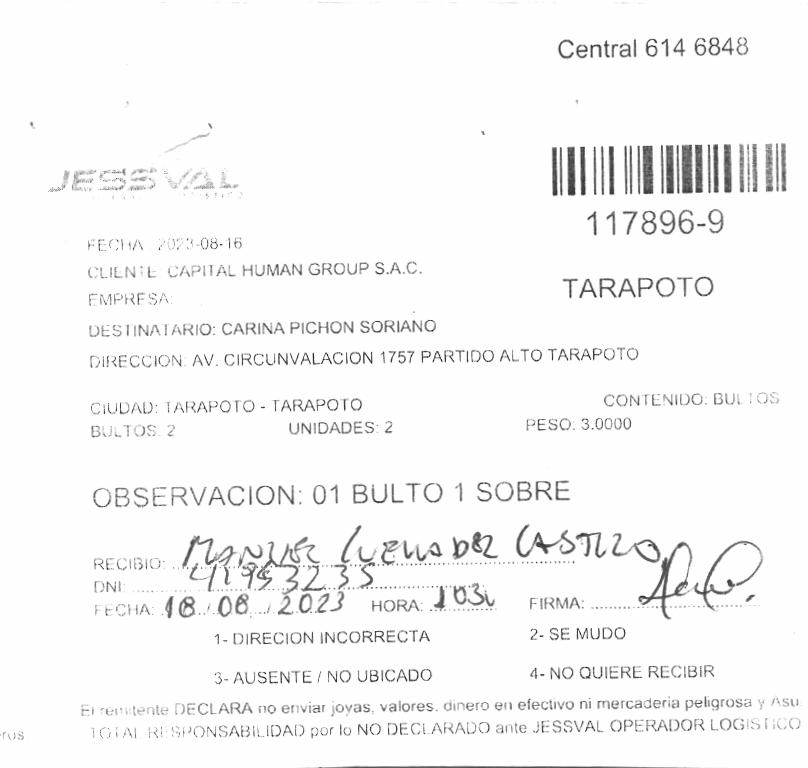 Central 614 6848
JESSVAL
117896-9
FECHA: 2023-08-16
CLIENTE: CAPITAL HUMAN GROUP S.A.C.
EMPRESA:
TARAPOTO
DESTINATARIO: CARINA PICHON SORIANO
DIRECCION: AV. CIRCUNVALACION 1757 PARTIDO ALTO TARAPOTO
CIUDAD: TARAPOTO - TARAPOTO CONTENIDO: BULTOS
BULTOS: 2 UNIDADES: 2 PESO: 3.0000
OBSERVACION: 01 BULTO 1 SOBRE
RECIBIO: MANUEL CASTILLO
DNI: 41953235
FECHA: 18/08/2023 HORA: FIRMA:
1- DIRECION INCORRECTA 2- SE MUDO
3- AUSENTE / NO UBICADO 4- NO QUIERE RECIBIR
El remitente DECLARA no enviar joyas, valores, dinero en efectivo ni mercaderia peligrosa y Asu
TOTAL RESPONSABILIDAD por lo NO DECLARADO ante JESSVAL OPERADOR LOGISTICO